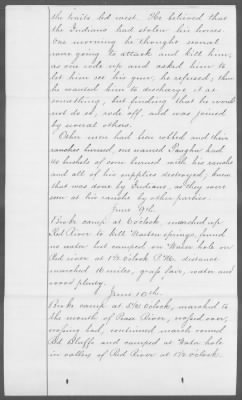 the trails led west. He believed that
the Indians had stolen his horses.
One morning he thought several
were going to attack and kill him;
as one rode up and asked him to
let him see his gun, he refused, then
he wanted him to discharge it at
something, but finding that he would
not do so, rode off, and was joined
by several others.
Other men had been robbed and their
ranches burned, one named had
40 bushels of corn burned with his ranche
and all of his supplies destroyed; knew
that was done by Indians, as they were
seen at his ranche by other parties.
June 9th.
Broke camp at 6 o'clock, marched up
Red River to hill Water springs, found
no water but camped on Water hole on
Red river at 1 o'clock P.M. distance
marched 16 miles, grass fair, water and
wood plenty.
June 10th.
Broke camp at 5 o'clock, marched to
the mouth of Pease River, crossed over,
crossing bad, continued march round
Bluffs and camped at Water hole
in valley of Red River at 1 o'clock.